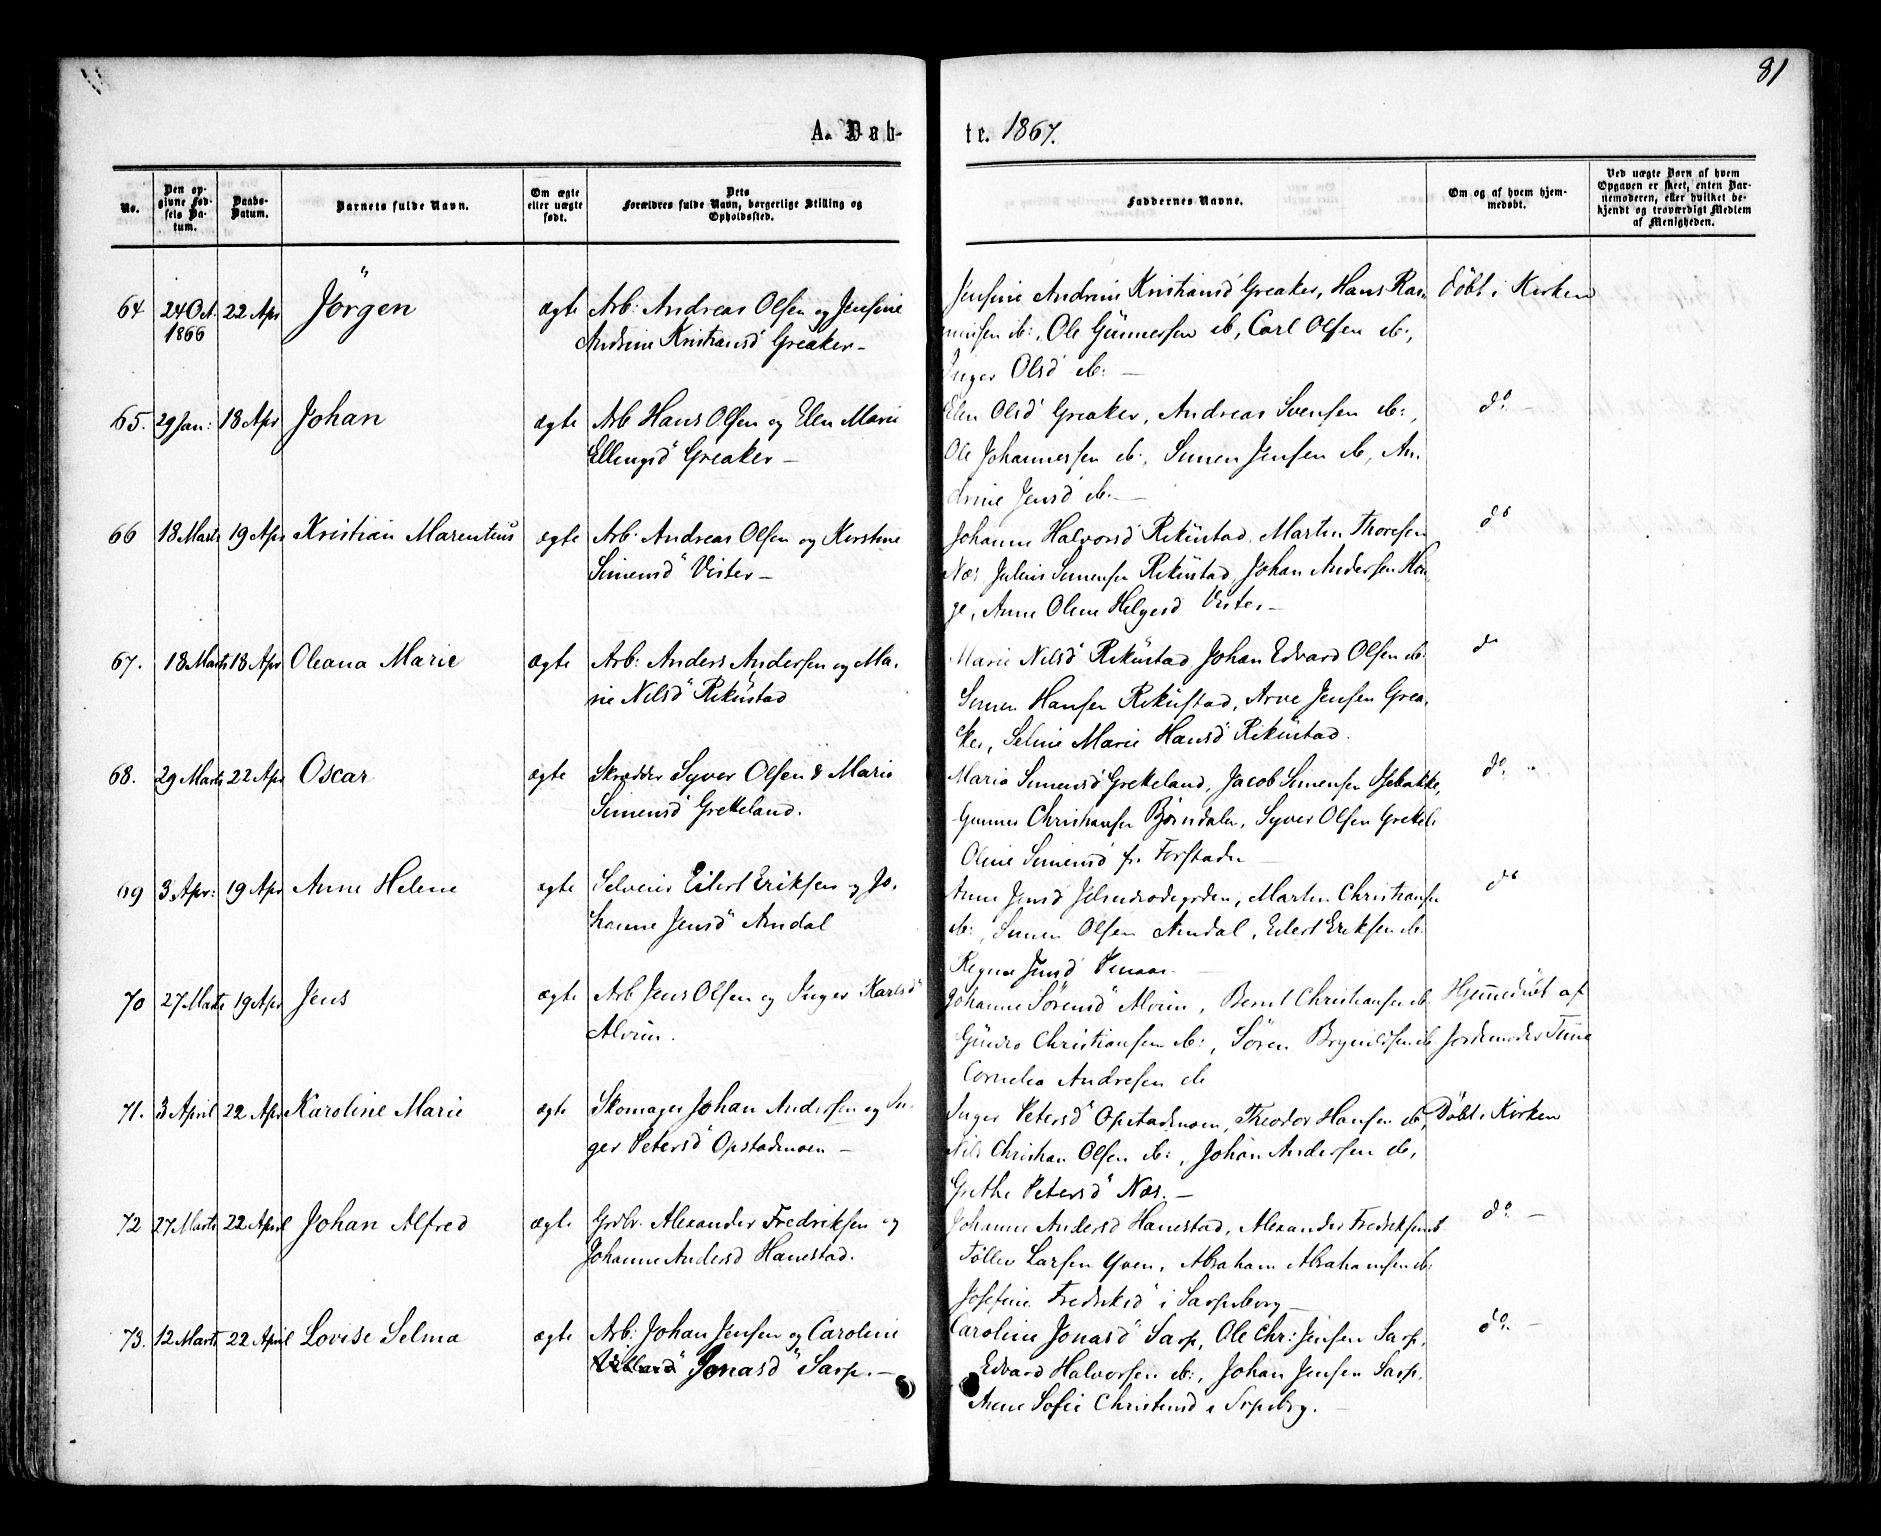 81
A. Døb-
te. 1867.
No.
Den opgivne Fødsels Datum.
Daabs-Datum.
Barnets fulde Navn.
Om ægte eller uægte født.
Dets Forældres fulde Navn, borgerlige Stilling og Opholdssted.
Faddernes Navne.
Om og af hvem hjemmedøbt.
Ved uægte Børn af hvem Opgaven er skeet, enten Barnemoderen, eller hvilket bekjendt og troværdigt Medlem af Menigheden.
64 24 Oct. 22 Apr Jörgen ægte Arb: Andreas Olsen og Jensine
1866 Andrine Kristiansd" Greaker-
Jensine Andrine Kristiansd Greaker, Hans Ras-
mussen ib:, Ole Gunnersen ib, Carl Olsen ib:,
Inger Olsd ib: -
Döbt i Kirken
65. 29 Jan: 18 Apr Johan ægte Arb Hans Olsen og Elen Marie
Ellingsd" Greaker -
Elen Olsd" Greaker, Andreas Svensen ib:,
Ole Johannessen ib:, Simen Jensen ib, An-
drine Jensd ib. -
do. -
66 18 Marts 19 Apr Kristian Marentius ægte Arb: Andreas Olsen og Kirstine
Simensd" Vister -
Johanne Halvorsd Rekustad, Martin Thoresen
Næs, Julius Simensen Rekustad, Johan Andersen Hau-
ge, Anne Oline Helgesd Vister -
do
67. 18 Marts 18 Apr Oleana Marie ægte Arb: Anders Andersen og Ma-
rie Nilsd" Rekustad
Marie Nilsd" Rekustad, Johan Edvard Olsen ib:
Simen Hansen Rekustad, Arve Jensen Grea-
ker, Seline Marie Hansd" Rekustad.
do
68. 29 Marts 22 Apr Oscar ægte Skrædder Syver Olsen & Maria
Simensd Grekeland.
Maria Simensd Grekeland, Jacob Simensen Spebakke,
Gunner Christiansen Björndalen, Syver Olsen Grekel.
Oline Simensd fr. Forstaden -
do. -
69 3 Apr: 19 Apr Anne Helene ægte Selveier Eilert Eriksen og Jo-
hanne Jensd" Arndal
Anne Jensd, Martin Christiansen
ib:, Simen Olsen Arndal, Eilert Eriksen ib.
Jensd -
do
70 27 Marts 19 Apr Jens ægte Arb Jens Olsen og Inger Karlsd"
Alvim.
Johanne Sörensd" Alvim, Bernt Christiansen ib.
Christiansen ib:, Sören Brynildsen ib
Cornelia Andresen ib
Hjemmedöbt af
Jordemoder Tune
71. 3 April 22 Apr Karoline Marie ægte Skomager Johan Andersen og In-
ger Petersd" Opstadmoen -
Inger Petersd" Opstadmoen, Theodor Hansen ib,
Nils Christian Olsen ib:, Johan Andersen ib,
Grethe Petersd" Næs. -
Döbt i Kirken
72 27 Marts 22 April Johan Alfred ægte Grdbr. Alexander Fredriksen og
Johanne Andersd Hanestad.
Johanne Andersd Hanestad, Alexander Fredriksen ib
Töller Larsen Yven, Abraham Abrahamsen ib:
Josefine Fredriksd" i Sarpsborg -
do. -
73. 12 Marts 22 April Lovise Selma ægte Arb: Johan Jensen og Caroline
Jonasd" Sarp. -
Caroline Jonasd" Sarp, Ole Chr: Jensen Sarp,
Edvard Halvorsen ib:, Johan Jensen Sarp,
Anne Sofie Christensd i Srpsborg. -
do. -